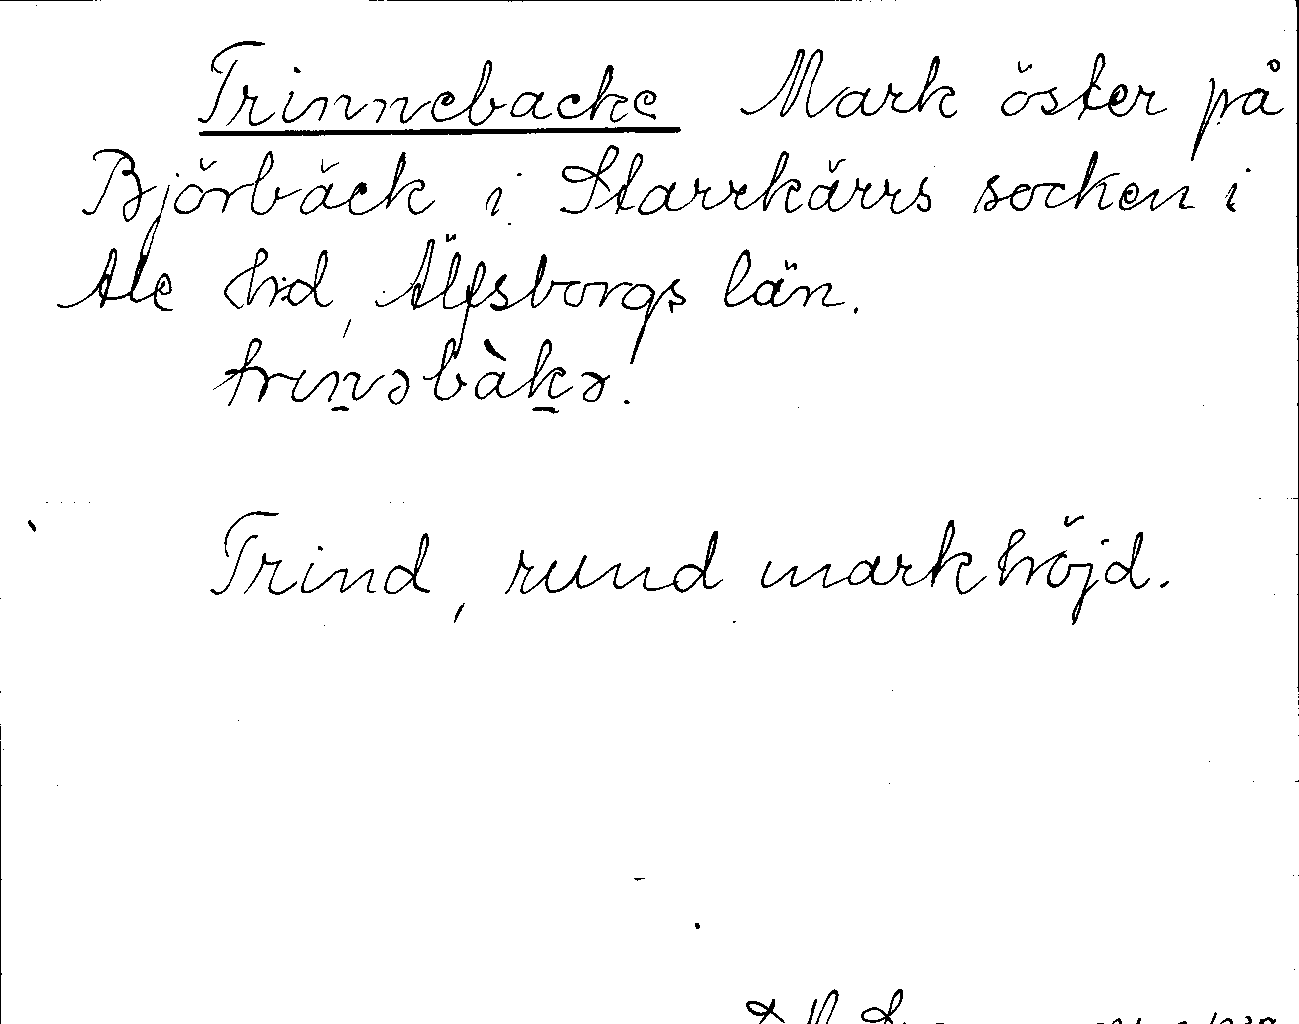 Trinnebacke Mark öster på
Björbäck i Starrkärrs socken i
Ale hd, Älfsborgs län.
trin̠əbàk̠ə.
Trind, rund markhöjd.